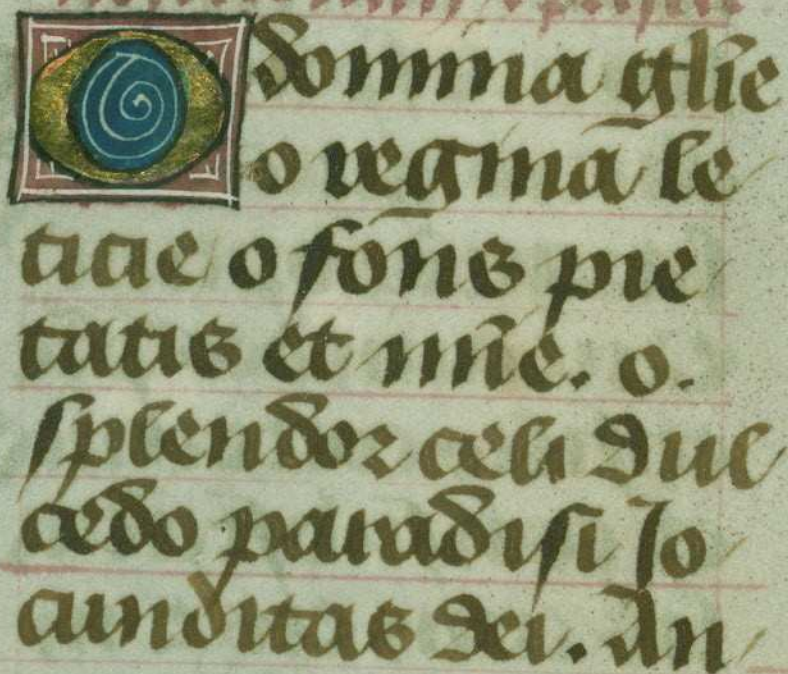 O domina gl̄ie
o regina le
ticie o fons pie
tatis et mīe. o.
splendor celi dul
cedo paradisi Jo
cunditas dei. An